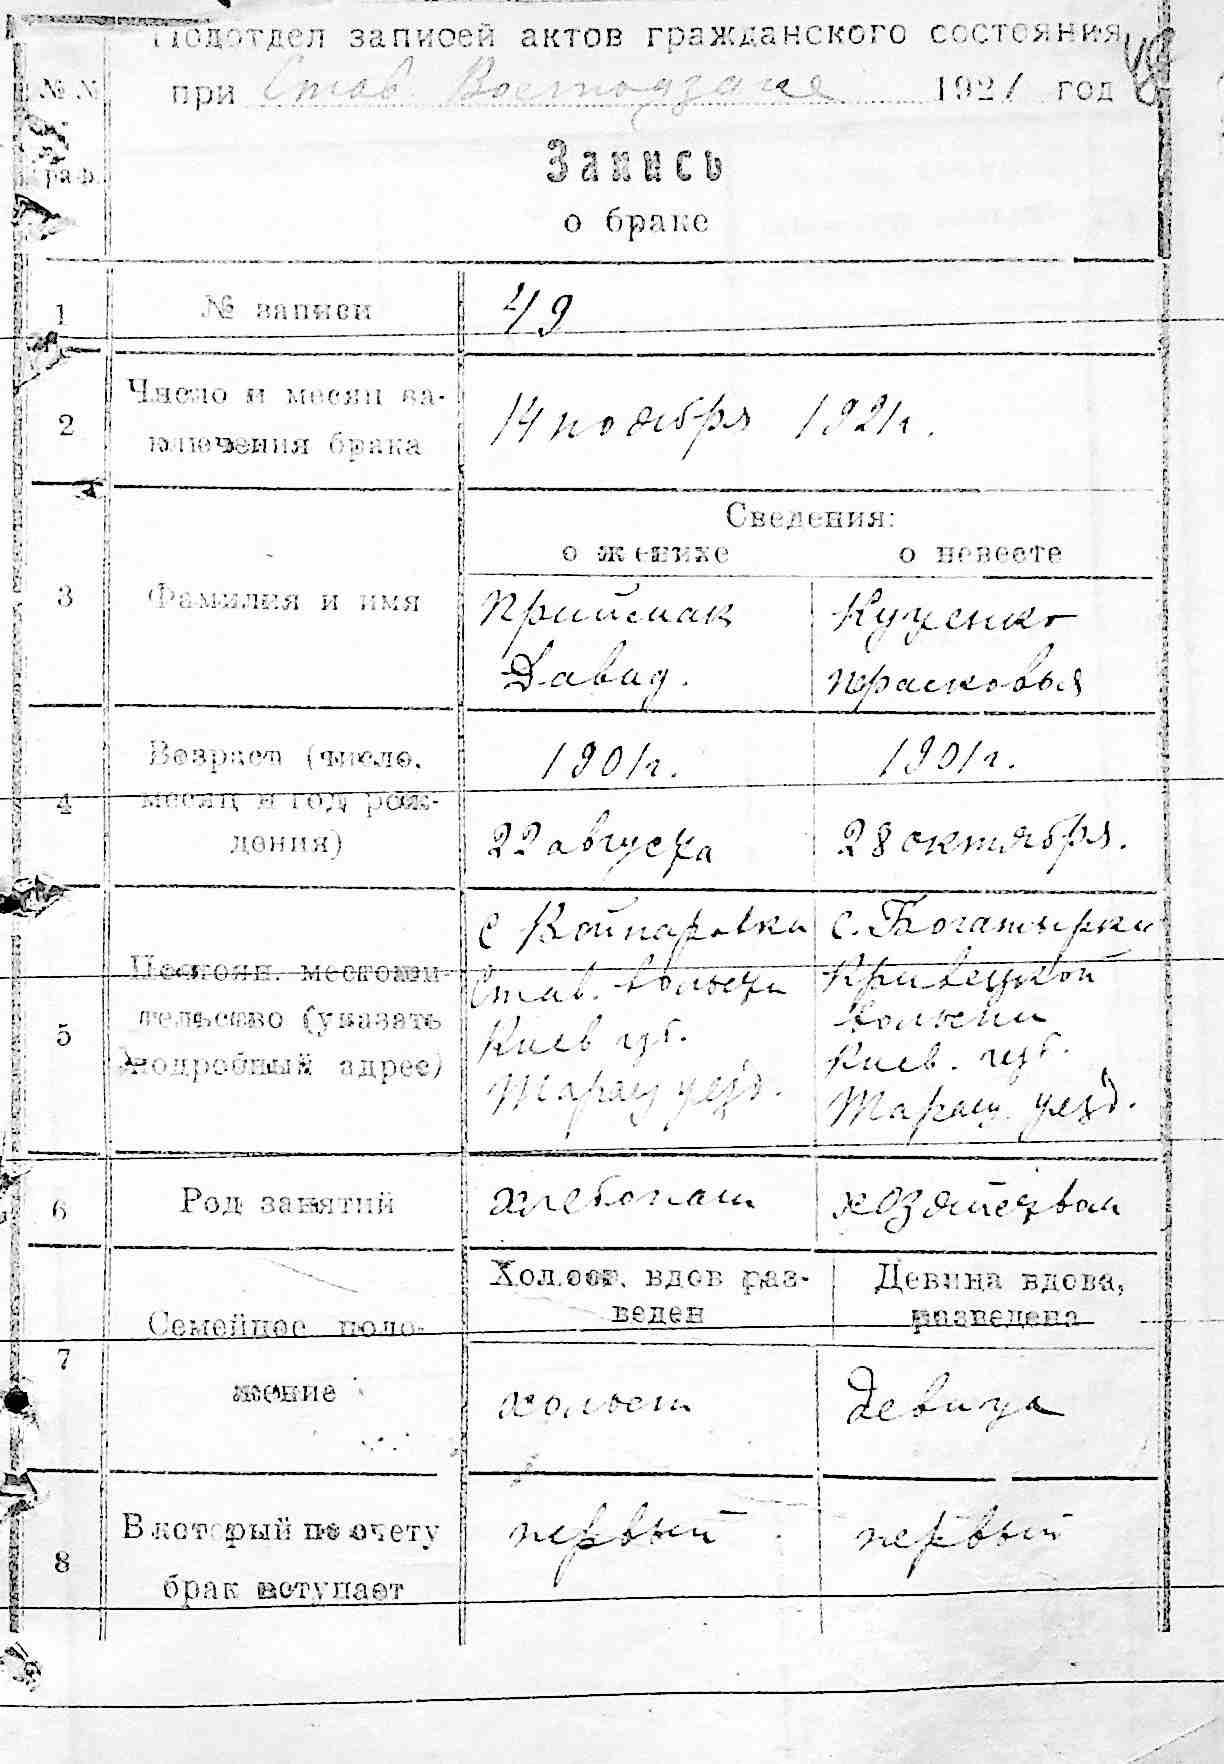 Подотдел записей актов гражданского состояния
№ №
граф.
при Став. 1921 год
Запись
о браке
1 № записи 49
2 Число и месяц за-
ключения брака
14 ноября 1921 г.
Сведения:
о женихе о невесте
3 Фамилия и имя
Приймак Куценко
Давид. Прасковья
4 Возраст (число,
месяц и год рож-
дения)
1901 г. 1901 г.
22 августа 28 октября.
5 Постоян. местожи-
тельство (указать
подробный адрес)
с Войнаровки с. Богатырки
Став. волости
Киев губ.
Таращ уезд.
волости
Киев. губ.
Таращ. уезд.
6 Род занятий хлебопаш
7 Семейное поло-
жение
Холост. вдов раз-
веден
Девица вдова,
разведена
холост девица
8 В который по счету
брак вступает
первый первый